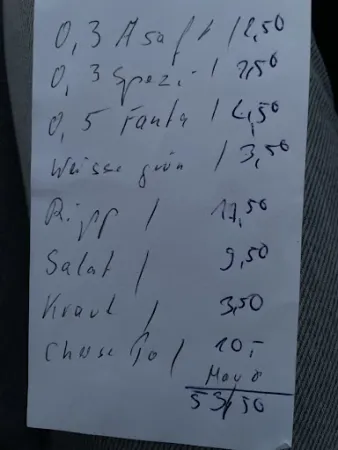 0,3 Asaft / 2,50
0,3 Spezi / 2,50
0,5 Fanta / 4,50
Weisse grün / 3,50
Ripp / 17,50
Salat / 9,50
Kraut / 3,50
10,-
53,50